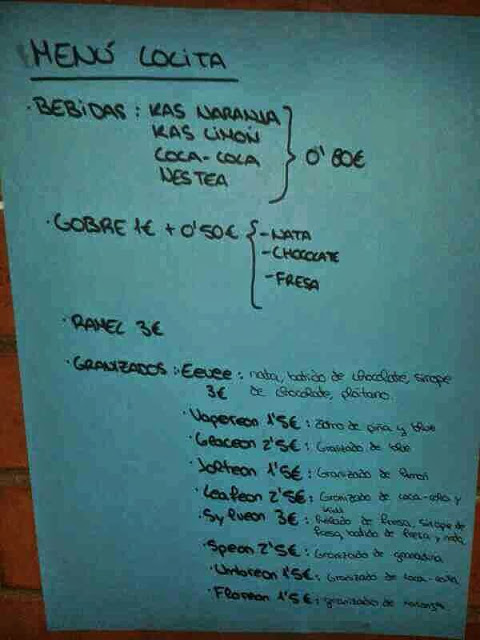 MENÚ LOLITA
· BEBIDAS : KAS NARANJA
KAS LIMÓN
COCA-COLA
NESTEA
0'80€
· GOFRE 1€ + 0'50€
- NATA
- CHOCOLATE
- FRESA
· RAMEL 3€
· GRANIZADOS : Eevee : nata, batido de chocolate, sirope
3€ de chocolate, platano.
· Vaporeon 1'5€ : de piña y blue
· Glaceon 2'5€ : Granizado de blue
· Jolteon 1'5€ : Granizado de limón
· Leafeon 2'5€ : Granizado de coca-cola y
kiwi
· Sylveon 3€ : Helado de fresa, sirope de
fresa, batido de fresa y nata
· Speon 2'5€ : Granizado de granadina
· Umbreon 1'5€ : Granizado de coca-cola
· Flareon 1'5€ : granizado de naranja